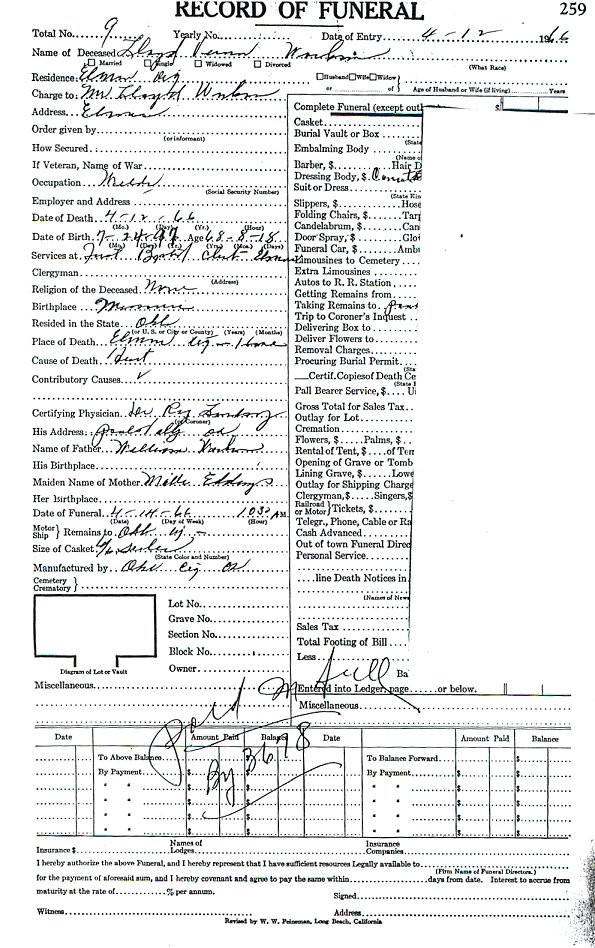 RECORD OF FUNERAL 259
Total No. 9 Yearly No. Date of Entry 4-12 1966
Name of Deceased Lloyd
Married Single Widowed Divorced (What Race)
Residence Elmer Husband Wife Widow or of Age of Husband or Wife (if living) Years
Charge to: Mrs. Lloyd
Address Elmer
Order given by (or informant)
How Secured
If Veteran, Name of War
Occupation (Social Security Number)
Employer and Address
Date of Death 4-12-66
(Mo.) (Day) (Yr.) (Hour)
Date of Birth 7-24-97 Age 68-8-18
(Mo.) (Day) (Yr.) (Yrs.) (Mos.) (Days)
Services at First Baptist Elmer
Clergyman (Address)
Religion of the Deceased None
Birthplace Missouri
Resided in the State Okla
(or U. S. or City or County) (Years) (Months)
Place of Death Elmer
Cause of Death Heart
Contributory Causes
Certifying Physician Dr. Ray
(or Coroner)
His Address
Name of Father William
His Birthplace
Maiden Name of Mother
Her Birthplace
Date of Funeral 4-14-66 10:30 AM
(Date) (Day of Week) (Hour)
Motor Ship } Remains to Okla
Size of Casket 6/6
(State Color and Number)
Manufactured by Okla City Ok
Cemetery Crematory }
Lot No.
Grave No.
Section No.
Block No.
Owner
Diagram of Lot or Vault
Miscellaneous
Complete Funeral (except out $
Casket
Burial Vault or Box
(State
Embalming Body
(Name o
Barber, $ Hair D
Dressing Body, $
Suit or Dress
(State Kin
Slippers, $ Hose
Folding Chairs, $ Tar
Candelabrum, $ Can
Door Spray, $ Glo
Funeral Car, $ Amb
Limousines to Cemetery
Extra Limousines
Autos to R. R. Station
Getting Remains from
Taking Remains to
Trip to Coroner's Inquest
Delivering Box to
Deliver Flowers to
Removal Charges
Procuring Burial Permit
(Sta
Certif. Copies of Death Ce
(State
Pall Bearer Service, $ U
Gross Total for Sales Tax
Outlay for Lot
Cremation
Flowers, $ Palms, $
Rental of Tent, $ of Ten
Opening of Grave or Tomb
Lining Grave, $ Lowe
Outlay for Shipping Charge
Clergyman, $ Singers, $
Railroad or Motor } Tickets, $
Telegr., Phone, Cable or Ra
Cash Advanced
Out of town Funeral Direc
Personal Service
line Death Notices in
(Names of New
Sales Tax
Total Footing of Bill
Less
Ba
Entered into Ledger, page or below.
Miscellaneous
Paid In Full
By 3678
Date Amount Paid Balance Date Amount Paid Balance
To Above Balance $ To Balance Forward $
By Payment $ $ By Payment $ $
" " $ $ " " $ $
" " $ $ " " $ $
" " $ $ " " $ $
" " $ $ " " $ $
Insurance $ Names of Lodges Insurance Companies
I hereby authorize the above Funeral, and I hereby represent that I have sufficient resources Legally available to
(Firm Name of Funeral Directors.)
for the payment of aforesaid sum, and I hereby covenant and agree to pay the same within days from date. Interest to accrue from
maturity at the rate of % per annum. Signed
Witness Address
Revised by W. W. Peineman, Long Beach, California